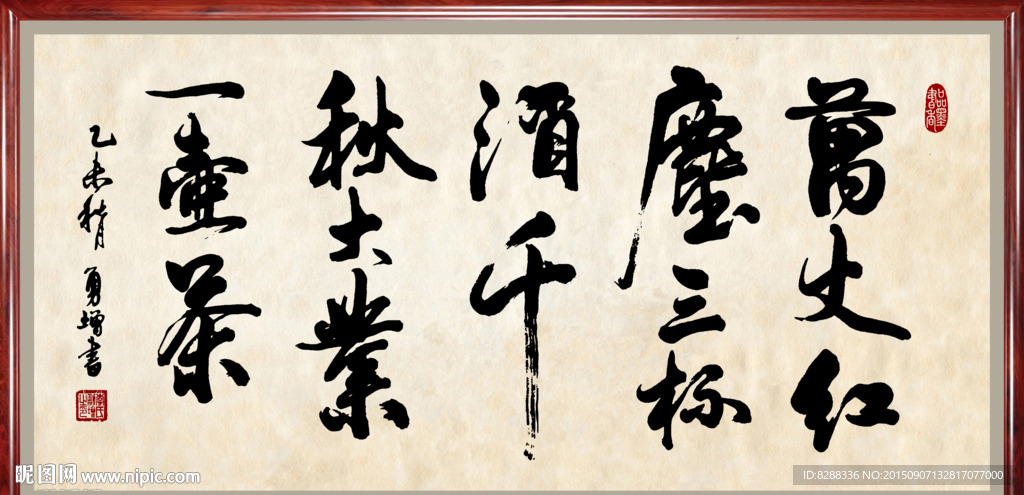 萬丈红
塵三杯
酒千
秋大業
一壺茶
乙未秋月 勇增書
昵图网 www.nipic.com
ID:8288336 NO:20150907132817077000